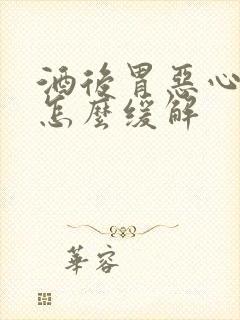 酒後胃惡心
怎麼緩解
華容